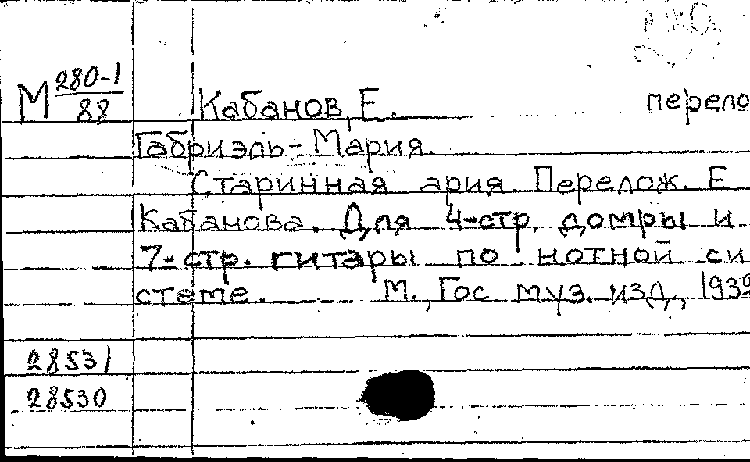 М 280-1/88 Кабанов, Е. перело
Габриэль-Мария.
Старинная ария. Перелож. Е
Кабанова. Для 4-стр. домры и
7-стр. гитары по нотной си
стеме. М., Гос муз. изд., 1939
28531
28530